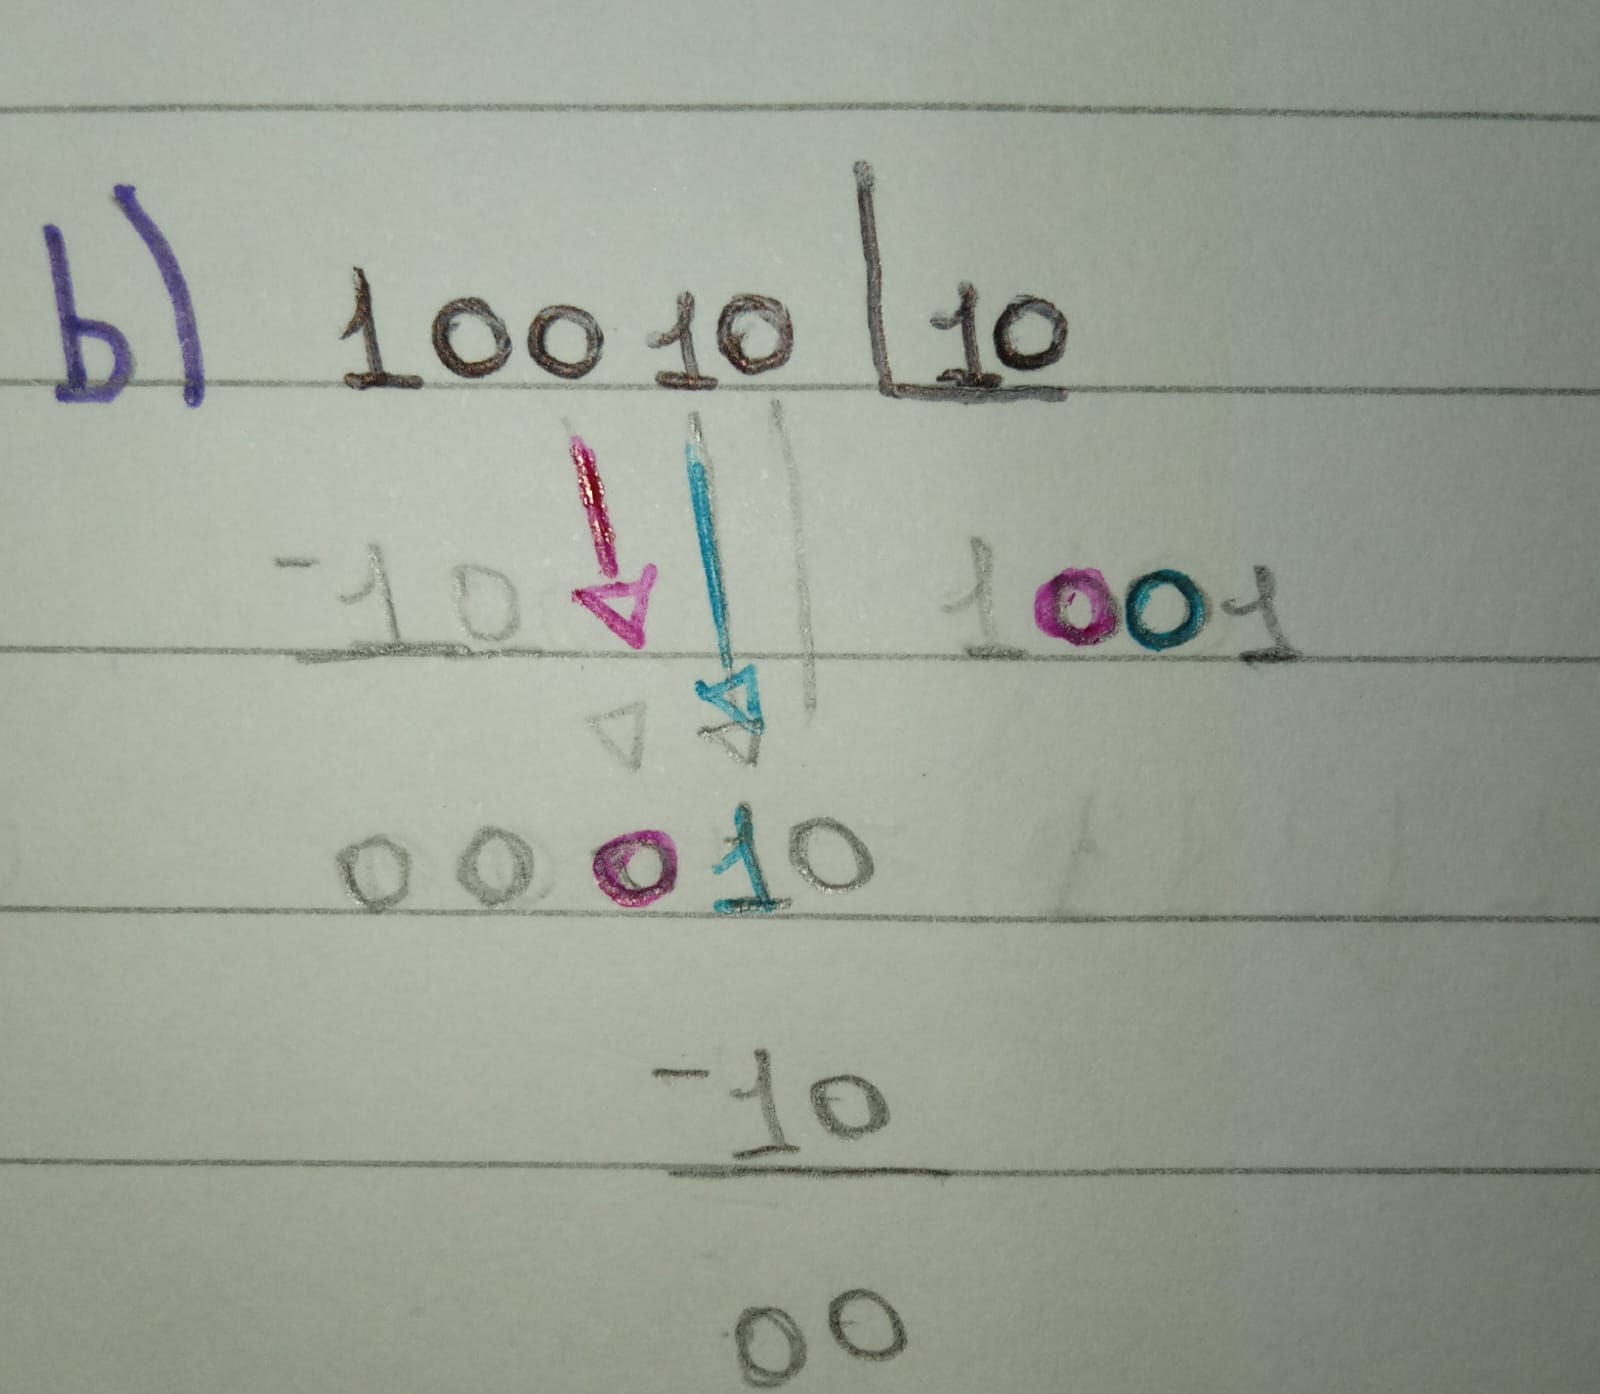 b) 10010 10
-10 1001
00010
-10
00